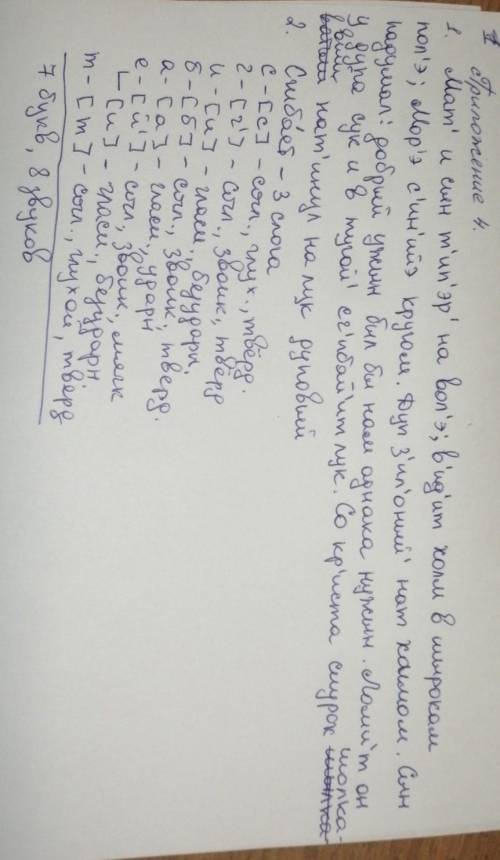 Приложение 4.
1. Мат' и сын т'ип'эр' на вол'э; в'ид'ит холм в широкам
пол'э; Мор'э с'ин'ийэ кругом. Дуп з'ил'оний' нат холмом. Сын
падумал: добрий ужин был бы нам однака нужын. Ломи'т он
у дуба сук и в тугой' сг'ибай'ит лук. Со кр'иста снурок шолка-
вый нат'инул на лук дуповий
2. Сгибáет – 3 слога
с-[с] – согл., глух., твёрд.
г-[г'] – согл., звонк., твёрд
и-[и] – гласн., безударн,
б-[б] – согл., звонк., тверд.
а-[а] – гласн., ударн
е-[й'] – согл, звонк, мягк
[и] – гласн., безударн
т-[т] – согл., глухой, твёрд
7 букв, 8 звуков